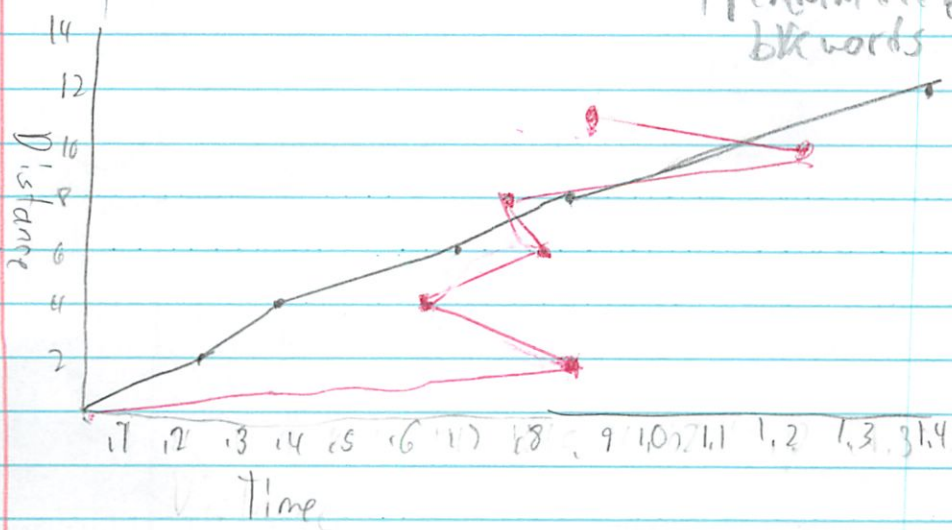 bkwords
14
12
10
8
6
4
2
Distance
.1 .2 .3 .4 .5 .6 .7 .8 .9 1.0 1.1 1.2 1.3 1.4
Time